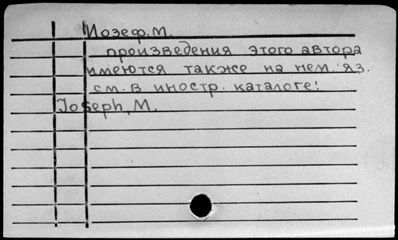 Иозеф, М.
произведения этого автора
имеются также на нем. яз.
см. в иностр. каталоге:
Joseph, M.